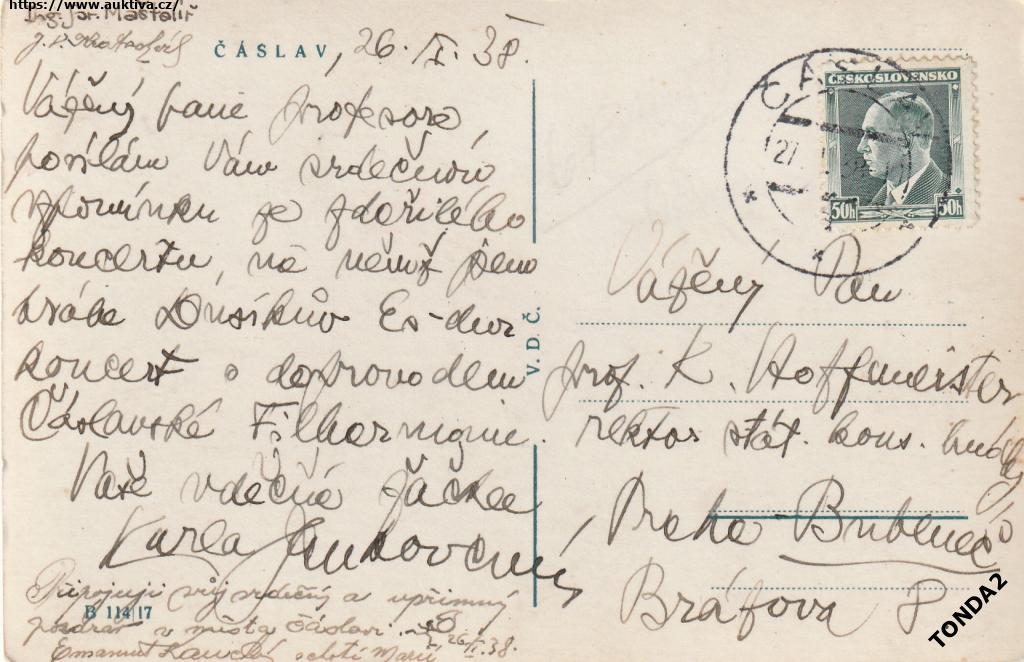 https://www.auktiva.cz/
Ing. Jar. Maštalíř
ČÁSLAV, 26. I. 38.
Vážený pane profesore,
posílám Vám srdečnou
vzpomínku ze zdařilého
koncertu, na němž jsem
hrála Dusíkův Es-dur
koncert s doprovodem
Čáslavské Filharmonie.
Vaše vděčná žačka
Karla
Připojuji svůj srdečný a upřímný
pozdrav z města Čáslavi. 26/I.38.
Emanuel
B 114 17
V. D. Č.
ČÁSLAV
27
ČESKOSLOVENSKO
50h 50h
Vážený Pan
prof. K. Hoffmeister
rektor stát. kons. hudby
Praha - Bubeneč
Bráfova 8
TONDA2